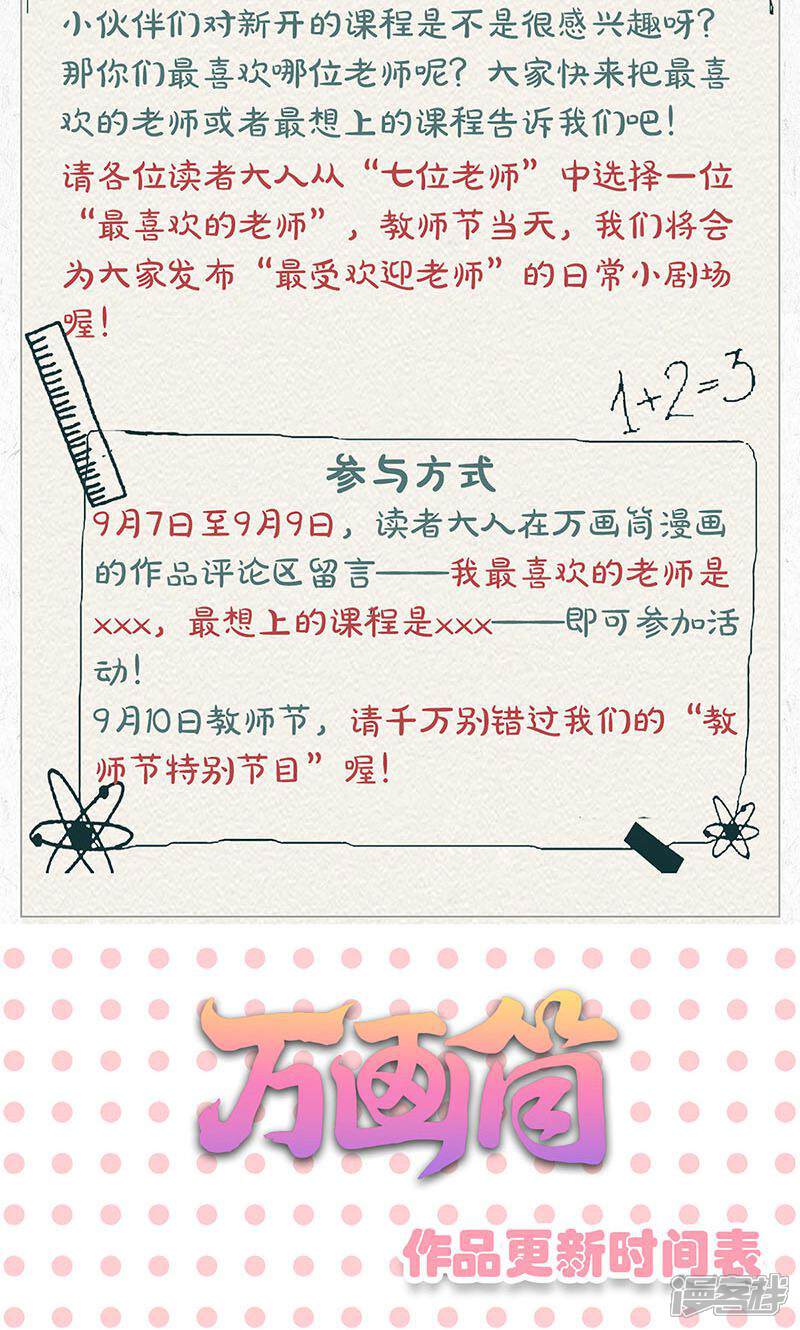 小伙伴们对新开的课程是不是很感兴趣呀?
那你们最喜欢哪位老师呢?大家快来把最喜
欢的老师或者最想上的课程告诉我们吧!
请各位读者大人从“七位老师”中选择一位
“最喜欢的老师”,教师节当天,我们将会
为大家发布“最受欢迎老师”的日常小剧场
喔!
1+2=3
参与方式
9月7日至9月9日,读者大人在万画筒漫画
的作品评论区留言——我最喜欢的老师是
xxx,最想上的课程是xxx——即可参加活
动!
9月10日教师节,请千万别错过我们的“教
师节特别节目”喔!
万画筒
作品更新时间表
漫客栈